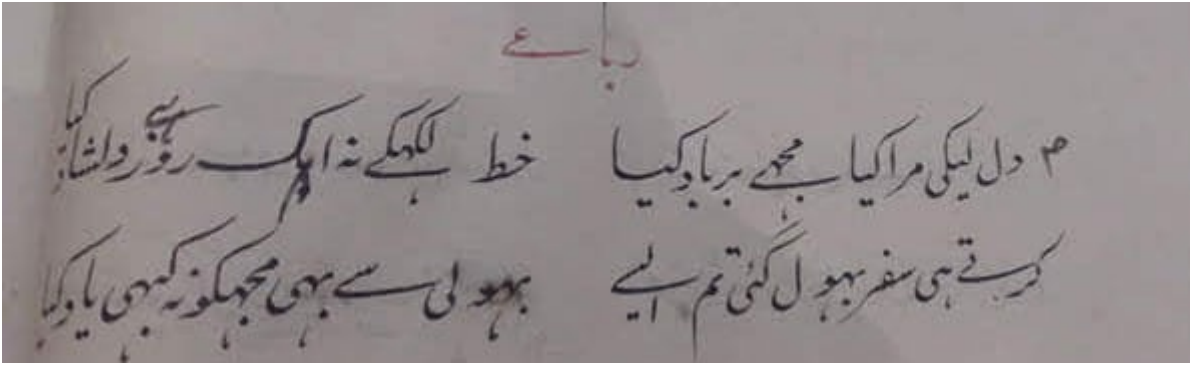 رباعے
م دل لیکی مرا کیا مجھے برباد کیا خط لکھکے نہ ایک روز بھی دلشاد کیا
کرتے ہی سفر بھول گئی تم ایسے بھولی سے بھی مجھکو نہ کبھی یاد کیا